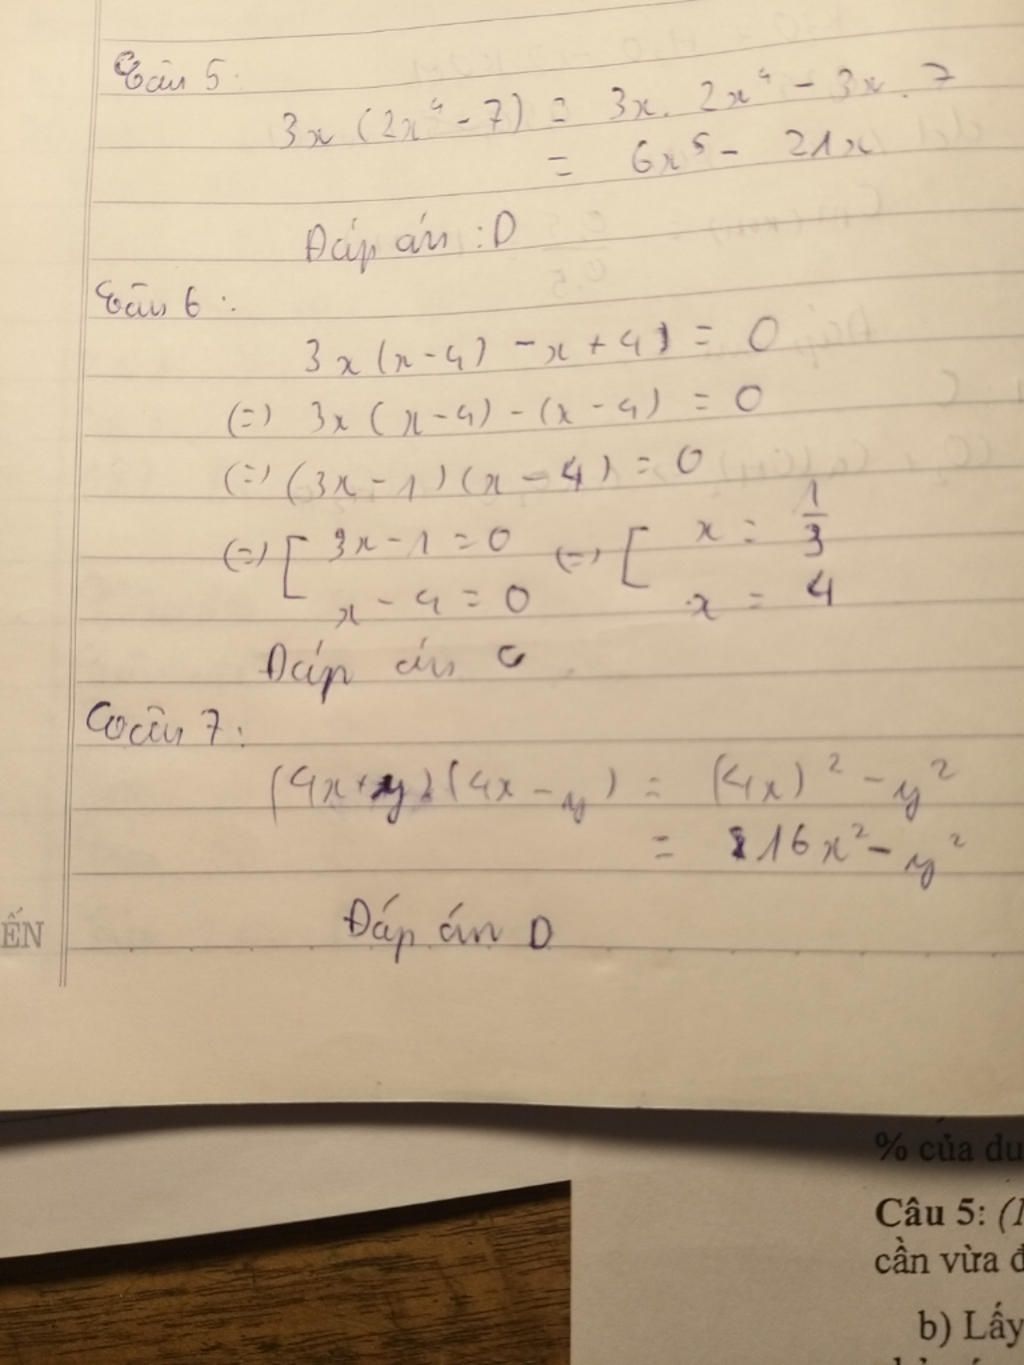 Câu 5:
3x (2x⁴ - 7) = 3x. 2x⁴ - 3x. 7
= 6x⁵ - 21x
Đáp án : D
Câu 6 :
3x(x-4) - x + 4) = 0
(=) 3x(x-4) - (x-4) = 0
(=) (3x-1)(x-4) = 0
(=) [ 3x-1 = 0 (=) [ x = 1/3
x - 4 = 0 x = 4
Đáp án C
Câu 7:
(4x+y)(4x-y) = (4x)² - y²
= 16x² - y²
Đáp án D
ẾN
% của du
Câu 5: (
cần vừa đ
b) Lấy